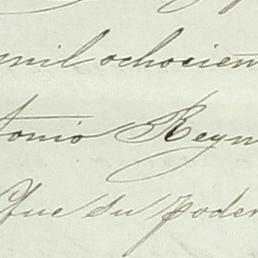 mil ochocien
tonio Reyn
Que su poder